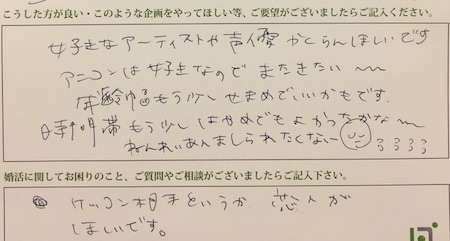 こうした方が良い・このような企画をやってほしい等、ご要望がございましたらご記入ください。
女子きなアーティストや声優かくらんほしいです
アニコンは好きなのでまたきたい〜
年齢幅もう少しせまめでいいかもです。
時間帯もう少しはやめでもよかったかな〜
ねんれいあんましられたくない〜
婚活に関してお困りのこと、ご質問やご相談がございましたらご記入下さい。
ケッコン相手というか 恋人が
ほしいです。